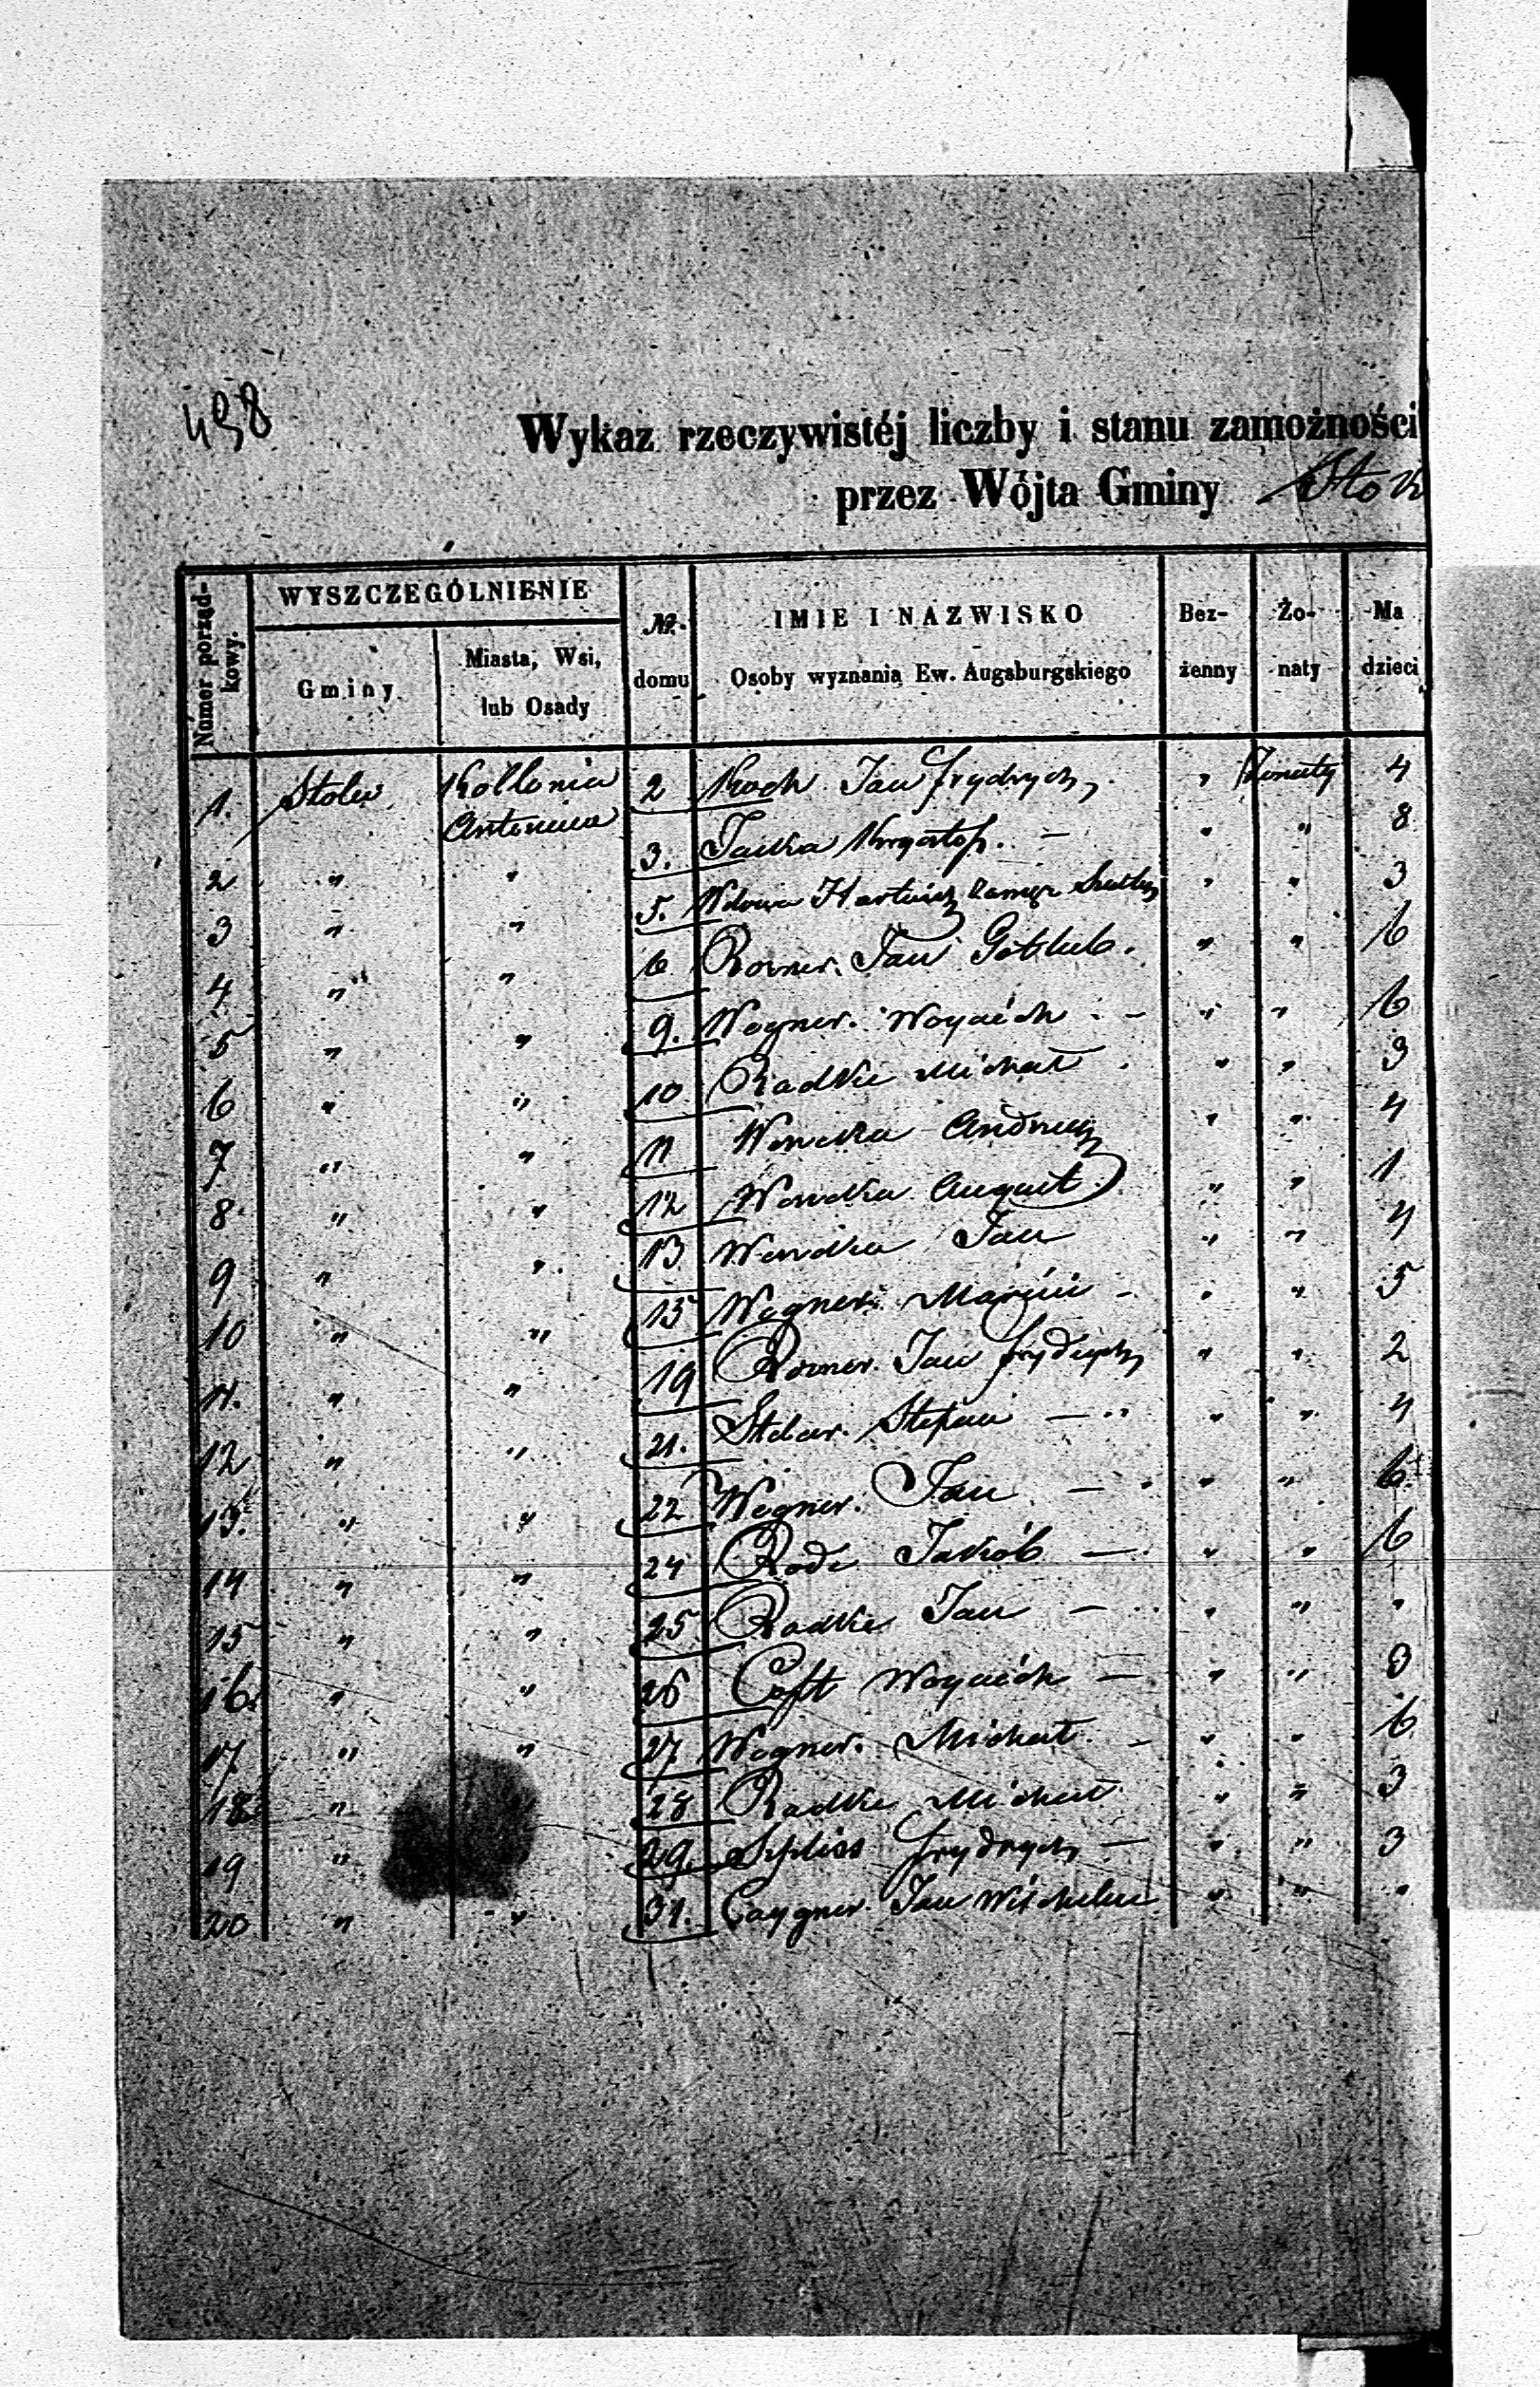 498
Wykaz rzeczywistéj liczby i stanu zamożności
przez Wójta Gminy Stok
Numer porządkowy.
WYSZCZEGÓLNIENIE
Gminy
Miasta, Wsi,
lub Osady
№.
domu
IMIE I NAZWISKO
Osoby wyznania Ew. Augsburgskiego
Bez-
żenny
Żo-
naty
Ma
dzieci
1. Kollonia 2 Koch Jan frydrych „ Żonaty 4
2 „ „ 3. Krysztof. — „ „ 8
3 „ „ 5. Wdowa „ „ 3
4 „ „ 6 Rovner. Jan Gotlieb. „ „ 6
5 „ „ 9. Wegner. Woyciéch - „ „ 6
6 „ „ 10 Radtke Michał „ „ 3
7 „ „ 11 „ „ 4
8 „ „ 12 August „ „ 1
9 „ „ 13 Jan „ „ 4
10 „ „ 15 Wegner. Marcin - „ „ 5
11. „ „ 19 Rovner. Jan frydrych „ „ 2
12 „ „ 21. Stefan — „ „ 4
13. „ „ 22 Wegner. Jan — „ „ 6.
14 „ „ 24 Rode Jakób — „ „ 6
15 „ „ 25 Radtke Jan — „ „ „
16. „ „ 26 Woyciéch — „ „
17. „ „ 27 Wegner. Michał - „ „ 6
18 „ 28 Radtke Michał „ „ 3
19 „ 29. frydrych — „ „ 3
20 „ „ 31. Jan „ „ „